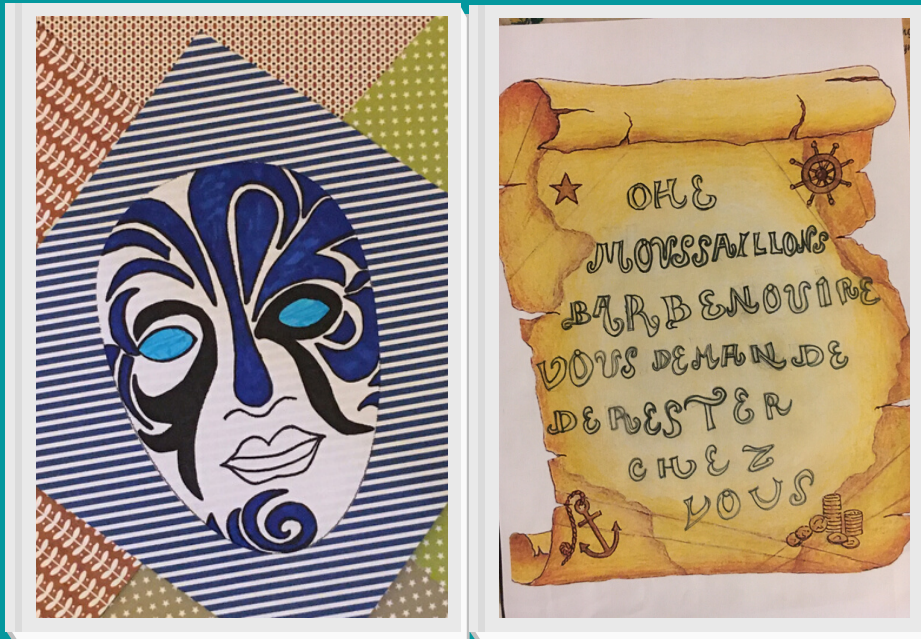 OHE
MOUSSAILLONS
BARBENOUIRE
VOUS DEMANDE
DE RESTER
CHEZ
VOUS